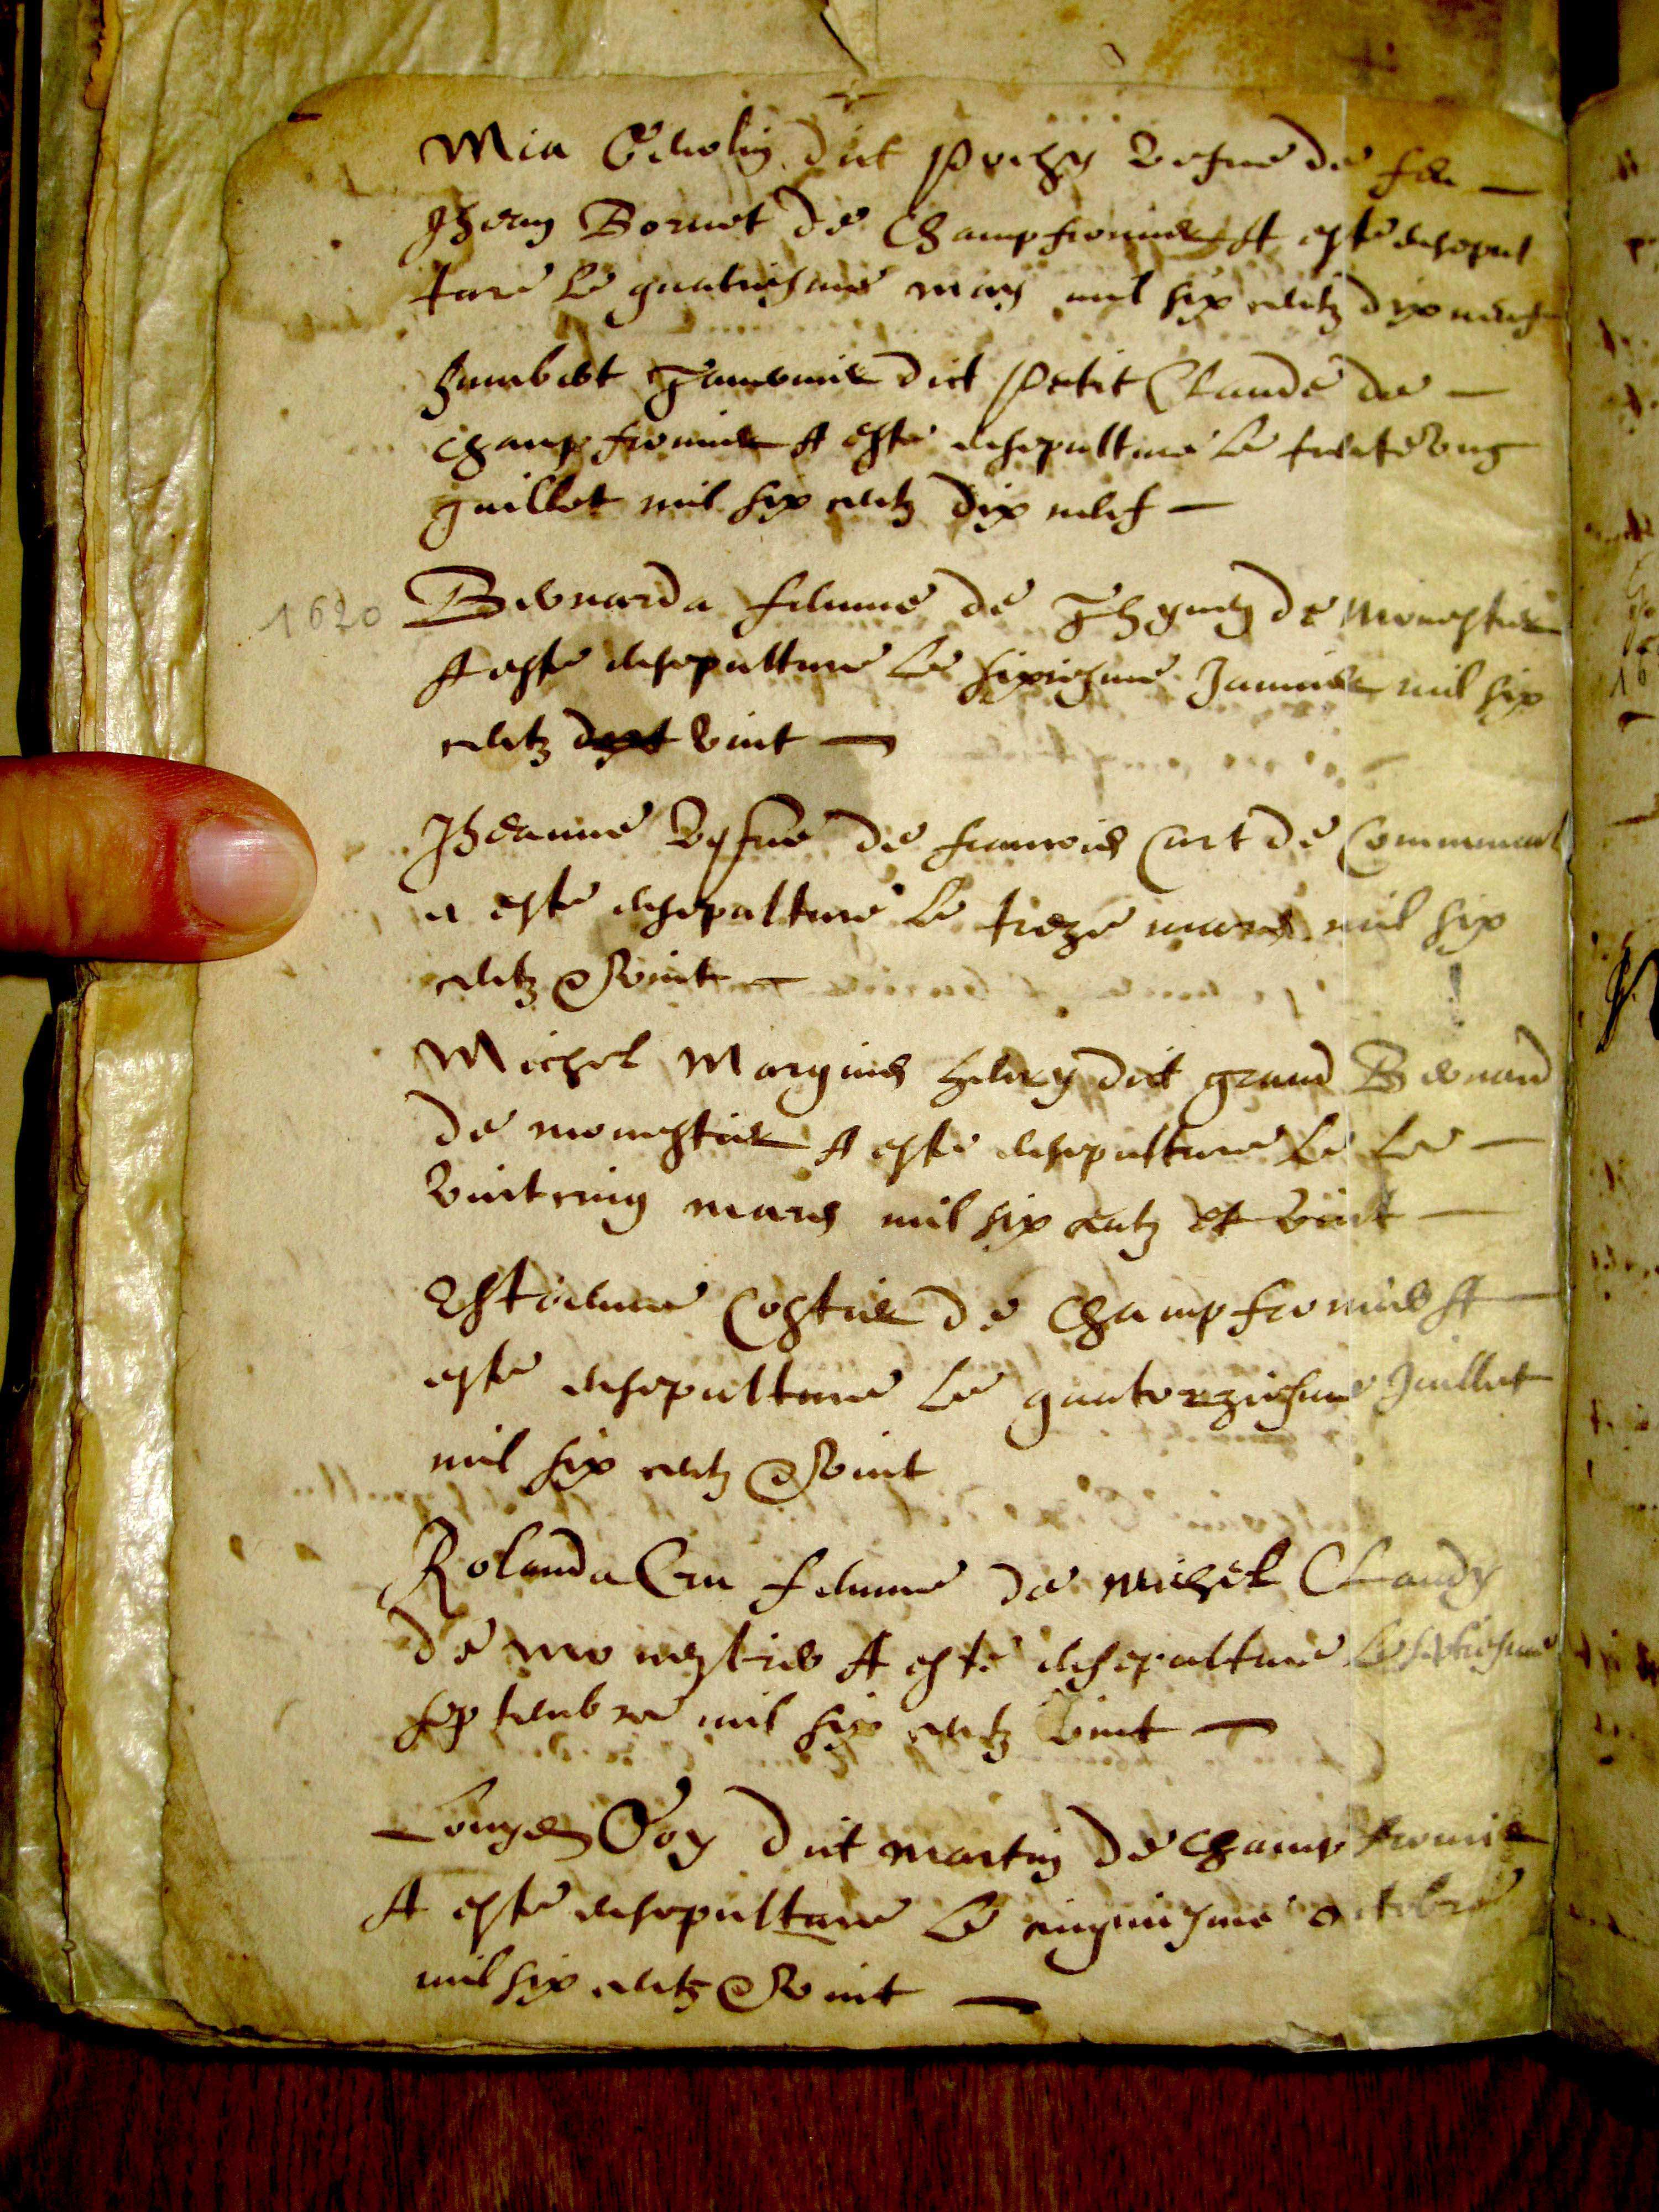 Mia dict vefue de feu
Jhean Bornet de Champfromier A esté ensepul
turé le quatriesme may mil six centz dix neuf
humbert Tavernier dict Petit Claude de
Champfromier A esté ensepulturé le trente ung
Juillet mil six centz dix neuf
1620
Bernarda femme de de monestier
A esté ensepulturé le sixiesme Januier mil six
centz vint
Jheanne vefue de francois Curt de Communal
a esté ensepulturé le treze mars mil six
centz & vint
Michel Marquis henry dict grand Bernard
de monestier A esté ensepulturé le le
vintcinq mars mil six centz et vint
Estienne Costier de Champfromier A
esté ensepulturé le quatorziesme Juillet
mil six centz & vint
Rolanda femme de michel Claudy
de monestier A esté ensepulturé le septiesme
septembre mil six centz vint
Louys dict martin de Champfromier
A esté ensepulturé le cinquiesme octobre
mil six centz & vint